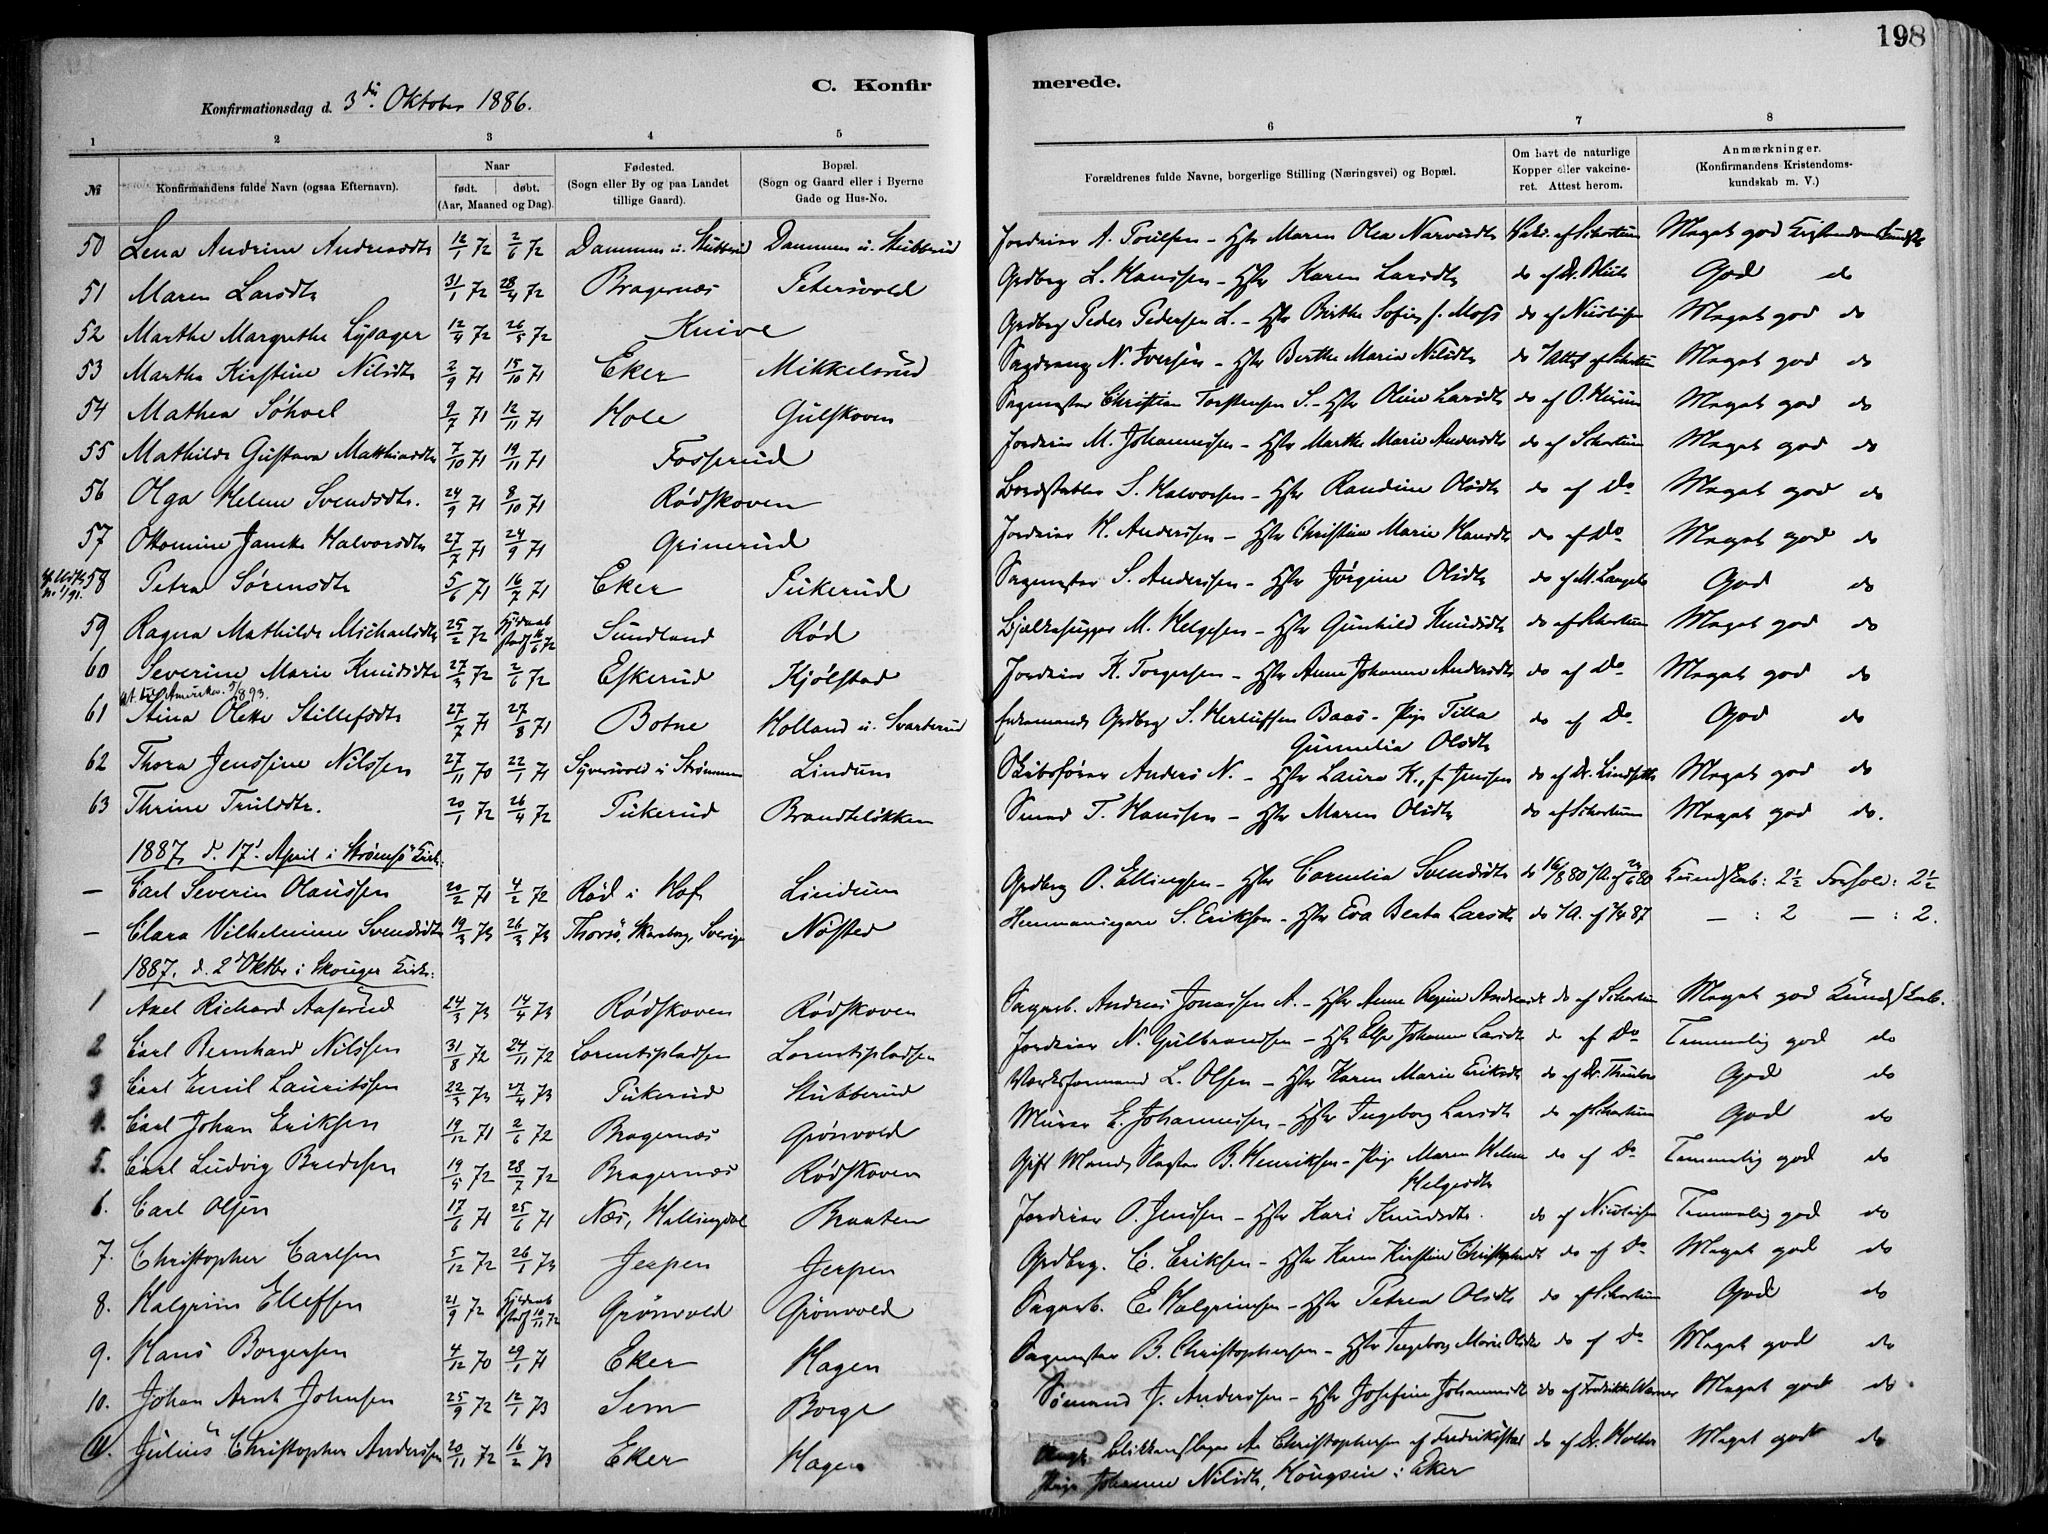 198
C. Konfirmerede.
Konfirmationsdag d. 3die Oktober 1886.
1 2 3 4 5 6 7 8
№ Konfirmandens fulde Navn (ogsaa Efternavn). Naar født. døbt. (Aar, Maaned og Dag). Fødested. (Sogn eller By og paa Landet tillige Gaard). Bopæl. (Sogn og Gaard eller i Byerne Gade og Hus-No. Forældrenes fulde Navne, borgerlige Stilling (Næringsvei) og Bopæl. Om havt de naturlige Kopper eller vakcineret. Attest herom. Anmærkninger. (Konfirmandens Kristendomskundskab m. V.)
50 Lena Andrine Andreasdtr 12/1 72 2/6 72 Dammen u. Stubberud Dammen u. Stubberud Jordeier A. Paulsen - Hstr Maren Olea Narvesdtr Vakc. af Schortum Meget god Kristendomskundsk.
51 Maren Larsdtr 31/1 72 28/4 72 Bragernæs Petersvold Grdbrg L. Hanssen - Hstr Karen Larsdtr do af Dr. God do
52 Marthe Margrethe Lysager 12/4 72 26/5 72 Knive Grdbrg Peder Pedersen L. - Hstr Birthe Sofie f. Moss do af Nicolaisen Meget god do
53 Marthe Kirstine Nilsdtr 2/9 71 15/10 71 Eker Mikkelsrud Sagdreng N. Iversen - Hstr Berthe Marie Nilsdtr do /Attest af Schortum Meget god do
54 Mathea Söhoel 9/7 71 12/11 71 Hole Gulskoven Sagmester Christian Torstensen S. - Hstr Oline Larsdtr do af O. Meget god do
55 Mathilde Gustava Matthiasdtr 7/10 71 19/11 71 Fosserud Jordeier M. Johannessen - Hstr Marthe Marie Andersdtr do af Schortum Meget god do
56 Olga Helene Svendsdtr. 24/9 71 8/10 71 Rødskoven Bordstabler S. Halvorsen - Hstr Randine Olsdtr do af Do Meget god do
57 Ottomine Jamike Halvorsdtr 27/7 71 24/9 71 Grinerud Jordeier H. Anderssen - Hstr Christine Marie Hansdtr do af Do Meget god do
58 Petra Sørensdtr 5/6 71 16/7 71 Eker Pukerud Sagmester S. Anderssen - Hstr Jørgine Olsdtr do af M. God do
59 Ragna Mathilde Michaelsdtr 25/2 72 Hjdaab stadf 16/6 72 Sundland Rød Bjelkehugger M. Helgesen - Hstr Gunhild Knudsdtr do af Schortum Meget god do
60 Severine Marie Knudsdtr 27/3 72 2/6 72 Eskerud Kjølstad Jordeier K. Torgersen - Hstr Anne Johanne Andersdtr do af Do Meget god do
Ut. til Amerika 5/8 93.
61 Stina Oleke Stillefsdtr 27/7 71 27/8 71 Botne Holland u. Svarterud Enkemand Grdbrg S. Herluffsen Baas - Pige Tilla Gunnelia Olsdtr do af Do God do
62 Thora Jenssine Nilssen 27/11 70 22/1 71 Syversvold i Strømmen Lindum Skibsfører Anders N. - Hstr Laura K., f. Jenssen do af Dr. Meget god do
63 Thrine Trulsdtr. 20/1 72 26/4 72 Pukerud Brandtsløkken Smed T. Hanssen - Hstr Maren Olsdtr do af Schortum Meget god do.
1887, d. 17. April i Strømsø Kirke:
- Carl Severin Olaussen 20/2 71 4/2 72 Rød i Hof Lindum Grdbrg O. Ellingsen - Hstr Cornelia Svendsdtr do 16/8 80 /A. af 24/6 80 Kundskab: 2½ Forhold: 2½
- Clara Vilhelmine Svendsdtr 19/3 73 26/3 73 Thorsø, Skarabrg, Sverige Nøsted Hemmansegare S. Erikson - Hstr Eva Beata Larsdtr do /A. af 87 - : 2 - : 2.
1887. d. 2den Oktbr i Skouger Kirke:
1 Axel Richard Aaserud 24/3 73 14/4 73 Rødskoven Rødskoven Sagarb. Andreas Jonassen A. - Hstr Anne Regine Andersdtr do af Schortum Meget god Kundskab.
2 Carl Bernhard Nilssen 31/8 72 24/11 72 Lorentspladsen Lorentspladsen Jordeier N. Gulbrandsen - Hstr Else Johanne Larsdtr do af Do Temmelig god do
3 Carl Emil Lauritssen 22/3 73 27/4 73 Pukerud Stubberud Værksformand L. Olsen - Hstr Karen Marie Eriksdtr do af Dr. God do
4. Carl Johan Eriksen 19/12 71 2/6 72 Bragernæs Grønvold Murer E. Johannessen - Hstr Ingeborg Larsdtr do af Schortum God do
5. Carl Ludvig Bredesen 19/5 72 28/7 72 Bragernæs Rødskoven Gift Mand, Slagter B. Henriksen - Pige Maren Helene Helgesdtr do af Do Temmelig god do
6. Carl Olsen 17/6 71 25/6 71 Næs, Hallingdal Braaten Jordeier O. Jenssen - Hstr Kari Knudsdtr. do af Nicolaisen Temmelig god do
7. Christopher Carlsen 5/12 72 26/1 73 Jerpen Jerpen Grdbrg. C. Eriksen - Hstr Karen Kirstine Christophersdt do af Do Meget god do
8. Halgrim Ellefsen 21/9 72 Hjdaab stadf 10/11 72 Grønvold Grønvold Sagarb. E. Halgrimsen - Hstr Petrea Olsdtr do af Schortum God do
9. Hans Borgersen 4/12 70 29/1 71 Eker Hagen Sagmester B. Christophersen - Hstr Ingeborg Marie Olsdtr do af Do Meget god do
10. Johan Arnt Johnsen 25/9 72 12/1 73 Sem Borge Sømand J. Anderssen - Hstr Josefine Johannesdt do af Fredrikke Warner Meget godt do.
11. Julius Christopher Anderssen 20/11 72 16/2 73 Eker Hagen Ungk. Blikkenslager Aa Christophersen af Fredrikstad do af Dr. Holter Meget godt do
Pige Johanne Nilsdtr, Hougsun i Eker